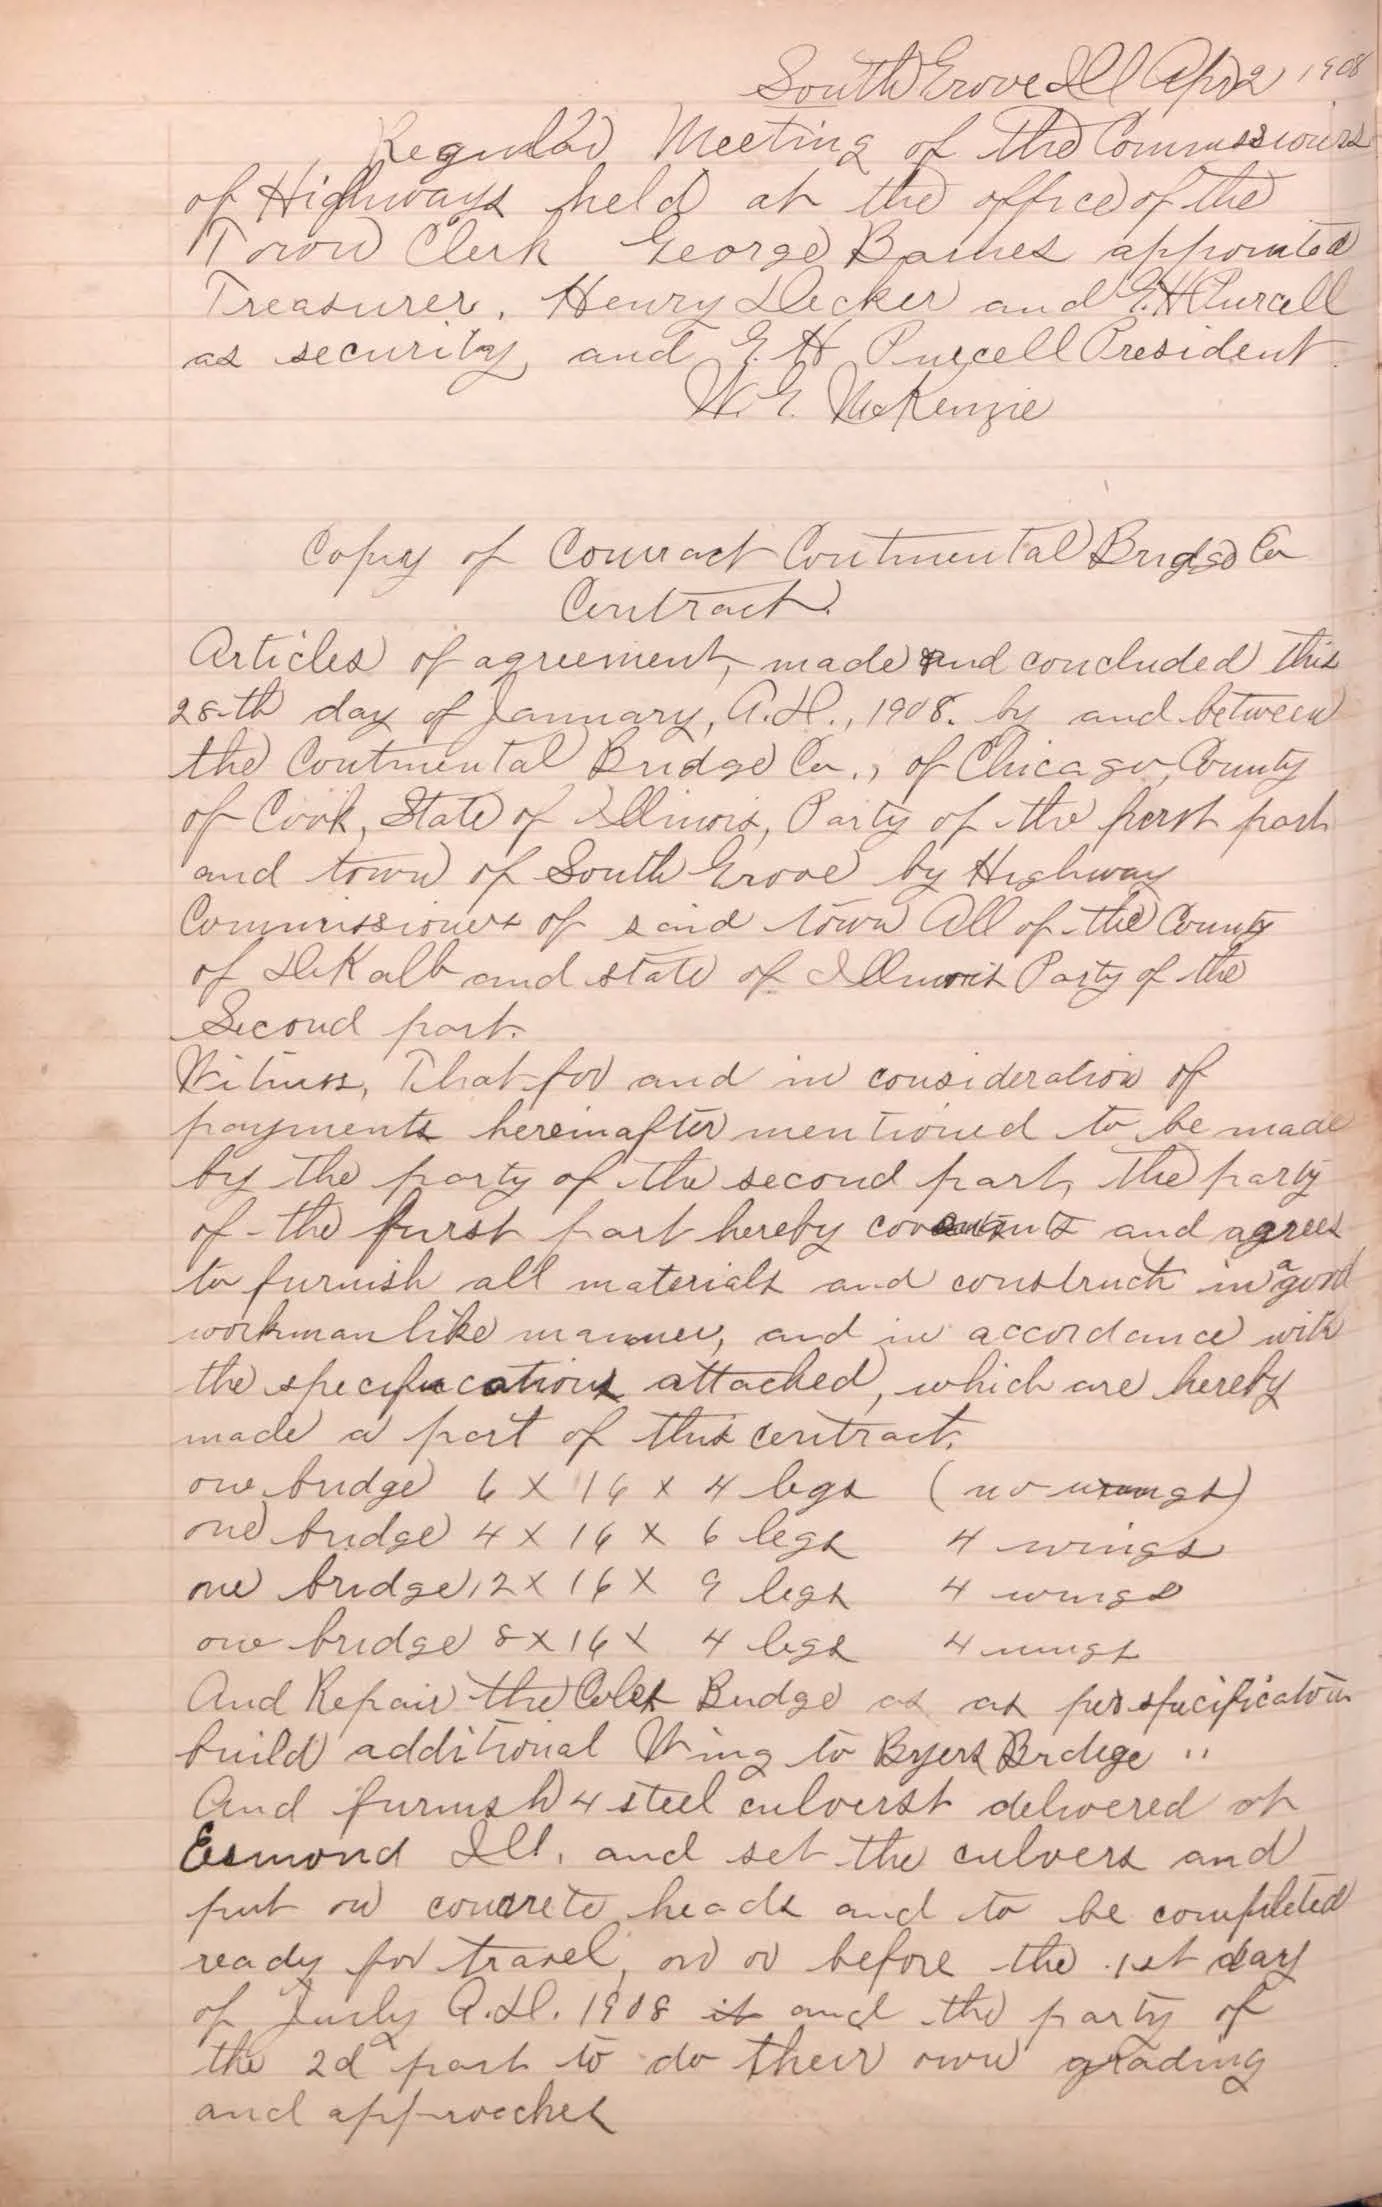 South Grove Ill Apr 2 1908
Regular Meeting of the Commissioners
of Highways held at the office of the
Town Clerk George Barnes appointed
Treasurer, Henry Decker and E.H Purcell
as security, and E. H Purcell President.
W. E. McKenzie
Copy of Contract Continental Bridge Co
Contract.
Articles of agreement, made and concluded this
28th day of January, A.D., 1908. by and between
the Continental Bridge Co., of Chicago, County
of Cook, State of Illinois, Party of the first part
and town of South Grove by Highway
Commissioners of said town All of the County
of DeKalb and state of Illinois Party of the
Second part.
Witness, That for and in consideration of
payments hereinafter mentioned to be made
by the party of the second part, the party
of the first part hereby covenants and agrees
to furnish all materials and construct in a good
workman like manner, and in accordance with
the specifications attached, which are hereby
made a part of this contract.
one bridge 6 X 16 x 4 legs (no wings)
one bridge 4 X 16 X 6 legs 4 wings
one bridge 12 X 16 X 9 legs 4 wings
one bridge 8 X 16 X 4 legs 4 wings
And Repair the Coles Bridge as as per specification
build additional Wing to Byers Brdige "
And furnish 4 steel culverst delivered at
Esmond Ill. and set the culvers and
put on concrete heads and to be completed
ready for travel, on or before the 1st day
of July A.D. 1908 it and the party of
the 2d part to do their own grading
and approaches